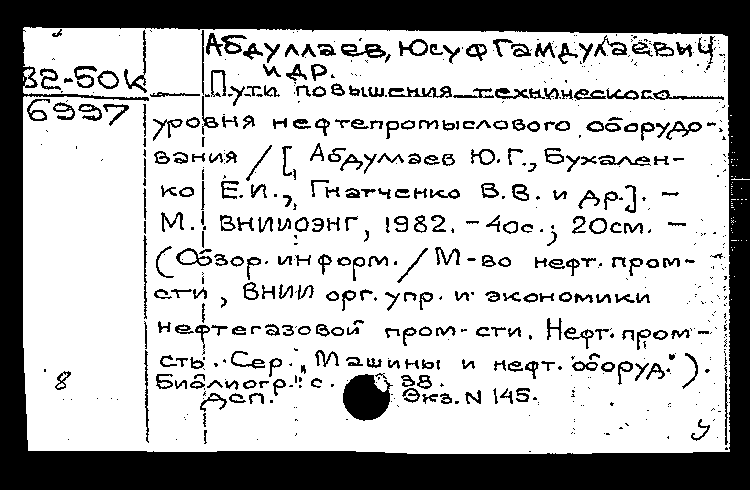 Абдуллаев, Юсуф Гамдулаевич
и др.
82-50К
Пути повышения технического
6997
уровня нефтепромыслового оборудо-
вания / [ Абдуллаев Ю.Г., Бухален-
ко Е.И., Гнатченко В.В. и др.]. –
М.: ВНИИОЭНГ, 1982. – 40с.; 20см. –
(Обзор. информ. / М-во нефт. пром-
сти, ВНИИ орг. упр. и экономики
нефтегазовой пром-сти. Нефт. пром-
сть. Сер. "Машины и нефт. оборуд.").
8
Библиогр.: с. 38.
ДСП. Экз. N 145.
У